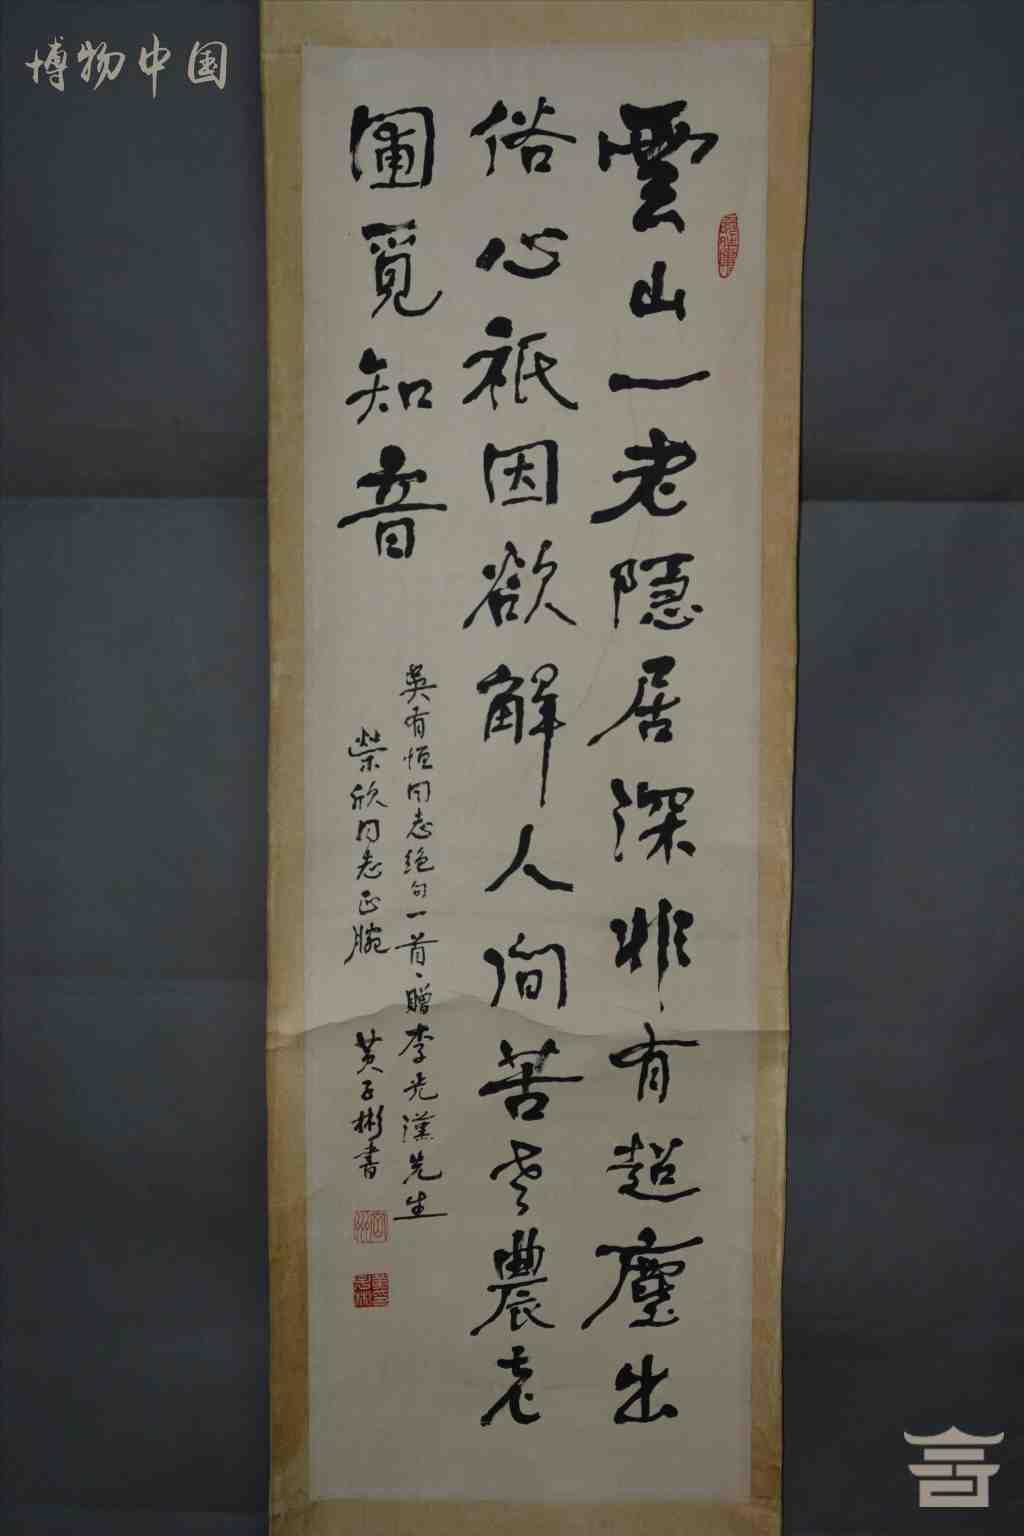 博物中国
雲山一老隱居深非有超塵出
俗心祇因欲解人間苦老農老
圃覓知音
吳有恒同志絕句一首、贈李光漢先生
榮欣同志正腕
黄子彬書